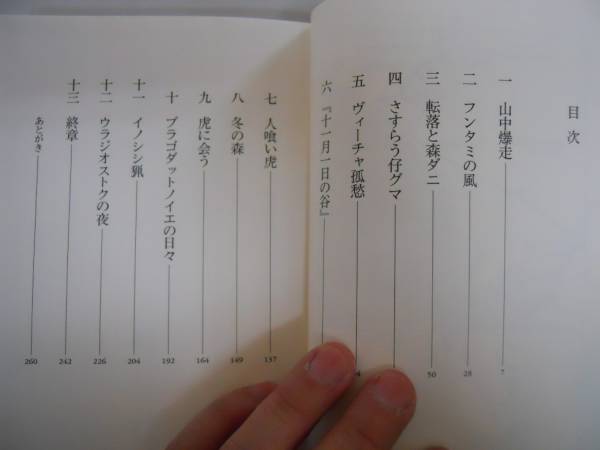 目次
一 山中爆走 7
二 フンタミの風 28
三 転落と森ダニ 50
四 さすらう仔グマ
五 ヴィーチャ孤愁 4
六 『十一月一日の谷』
七 人喰い虎 137
八 冬の森 149
九 虎に会う 164
十 ブラゴダットノイエの日々 192
十一 イノシシ猟 204
十二 ウラジオストクの夜 226
十三 終章 242
あとがき 260